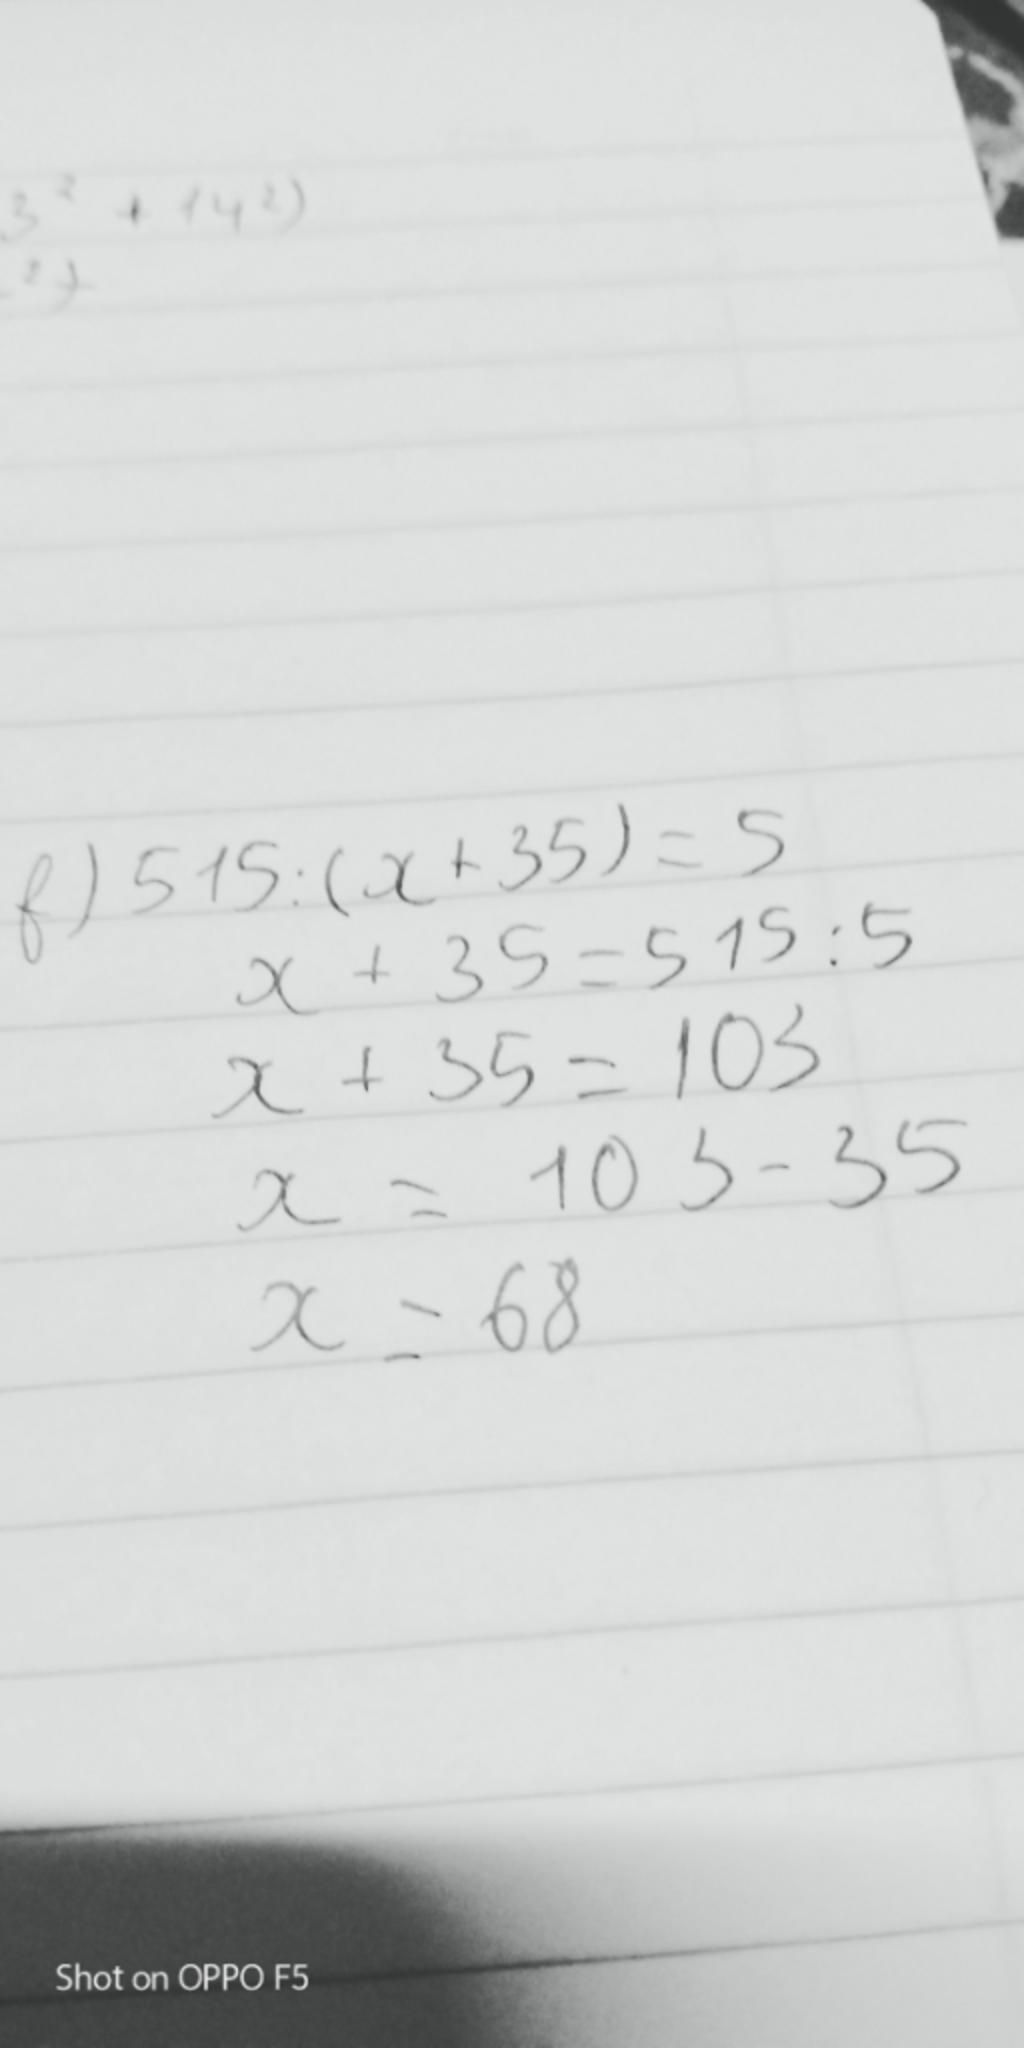 3² + 14²)
²)
f) 515:(x+35)=5
x + 35=515:5
x + 35 = 103
x = 103-35
x = 68
Shot on OPPO F5